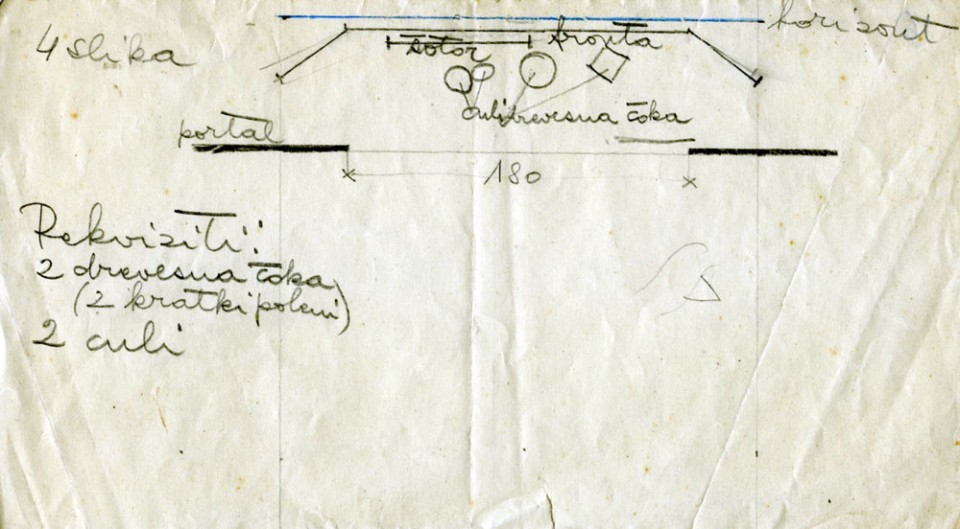 horizont
4 slika
šotor fronta
culi drevesna čoka
portal
180
Rekviziti:
2 drevesna čoka
(2 kratki poleni)
2 culi